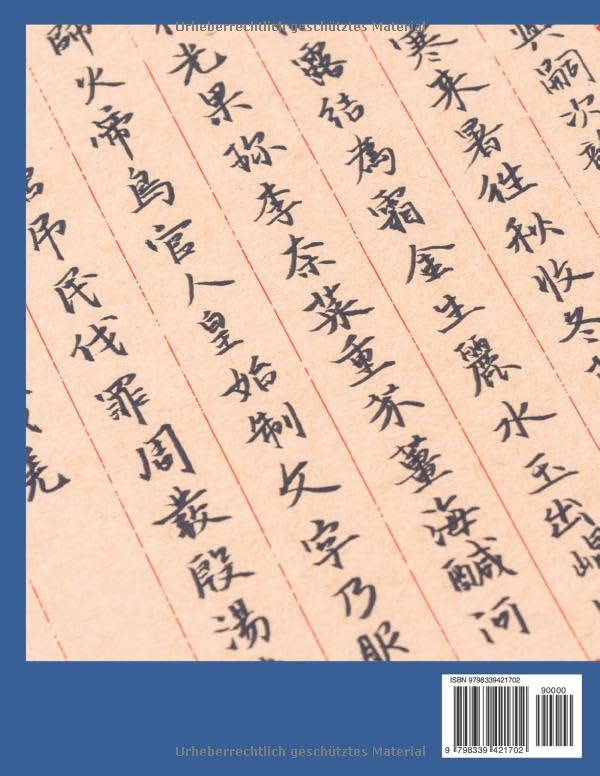 Urheberrechtlich geschütztes Material
與嗣次韻
寒來暑往秋收冬
露結為霜金生麗水玉出崑
光果珎李奈菜重芥薑海鹹河
師火帝鳥官人皇始制文字乃服
弔民伐罪周發殷湯
羌
ISBN 9798339421702
90000
9 798339 421702
Urheberrechtlich geschütztes Material